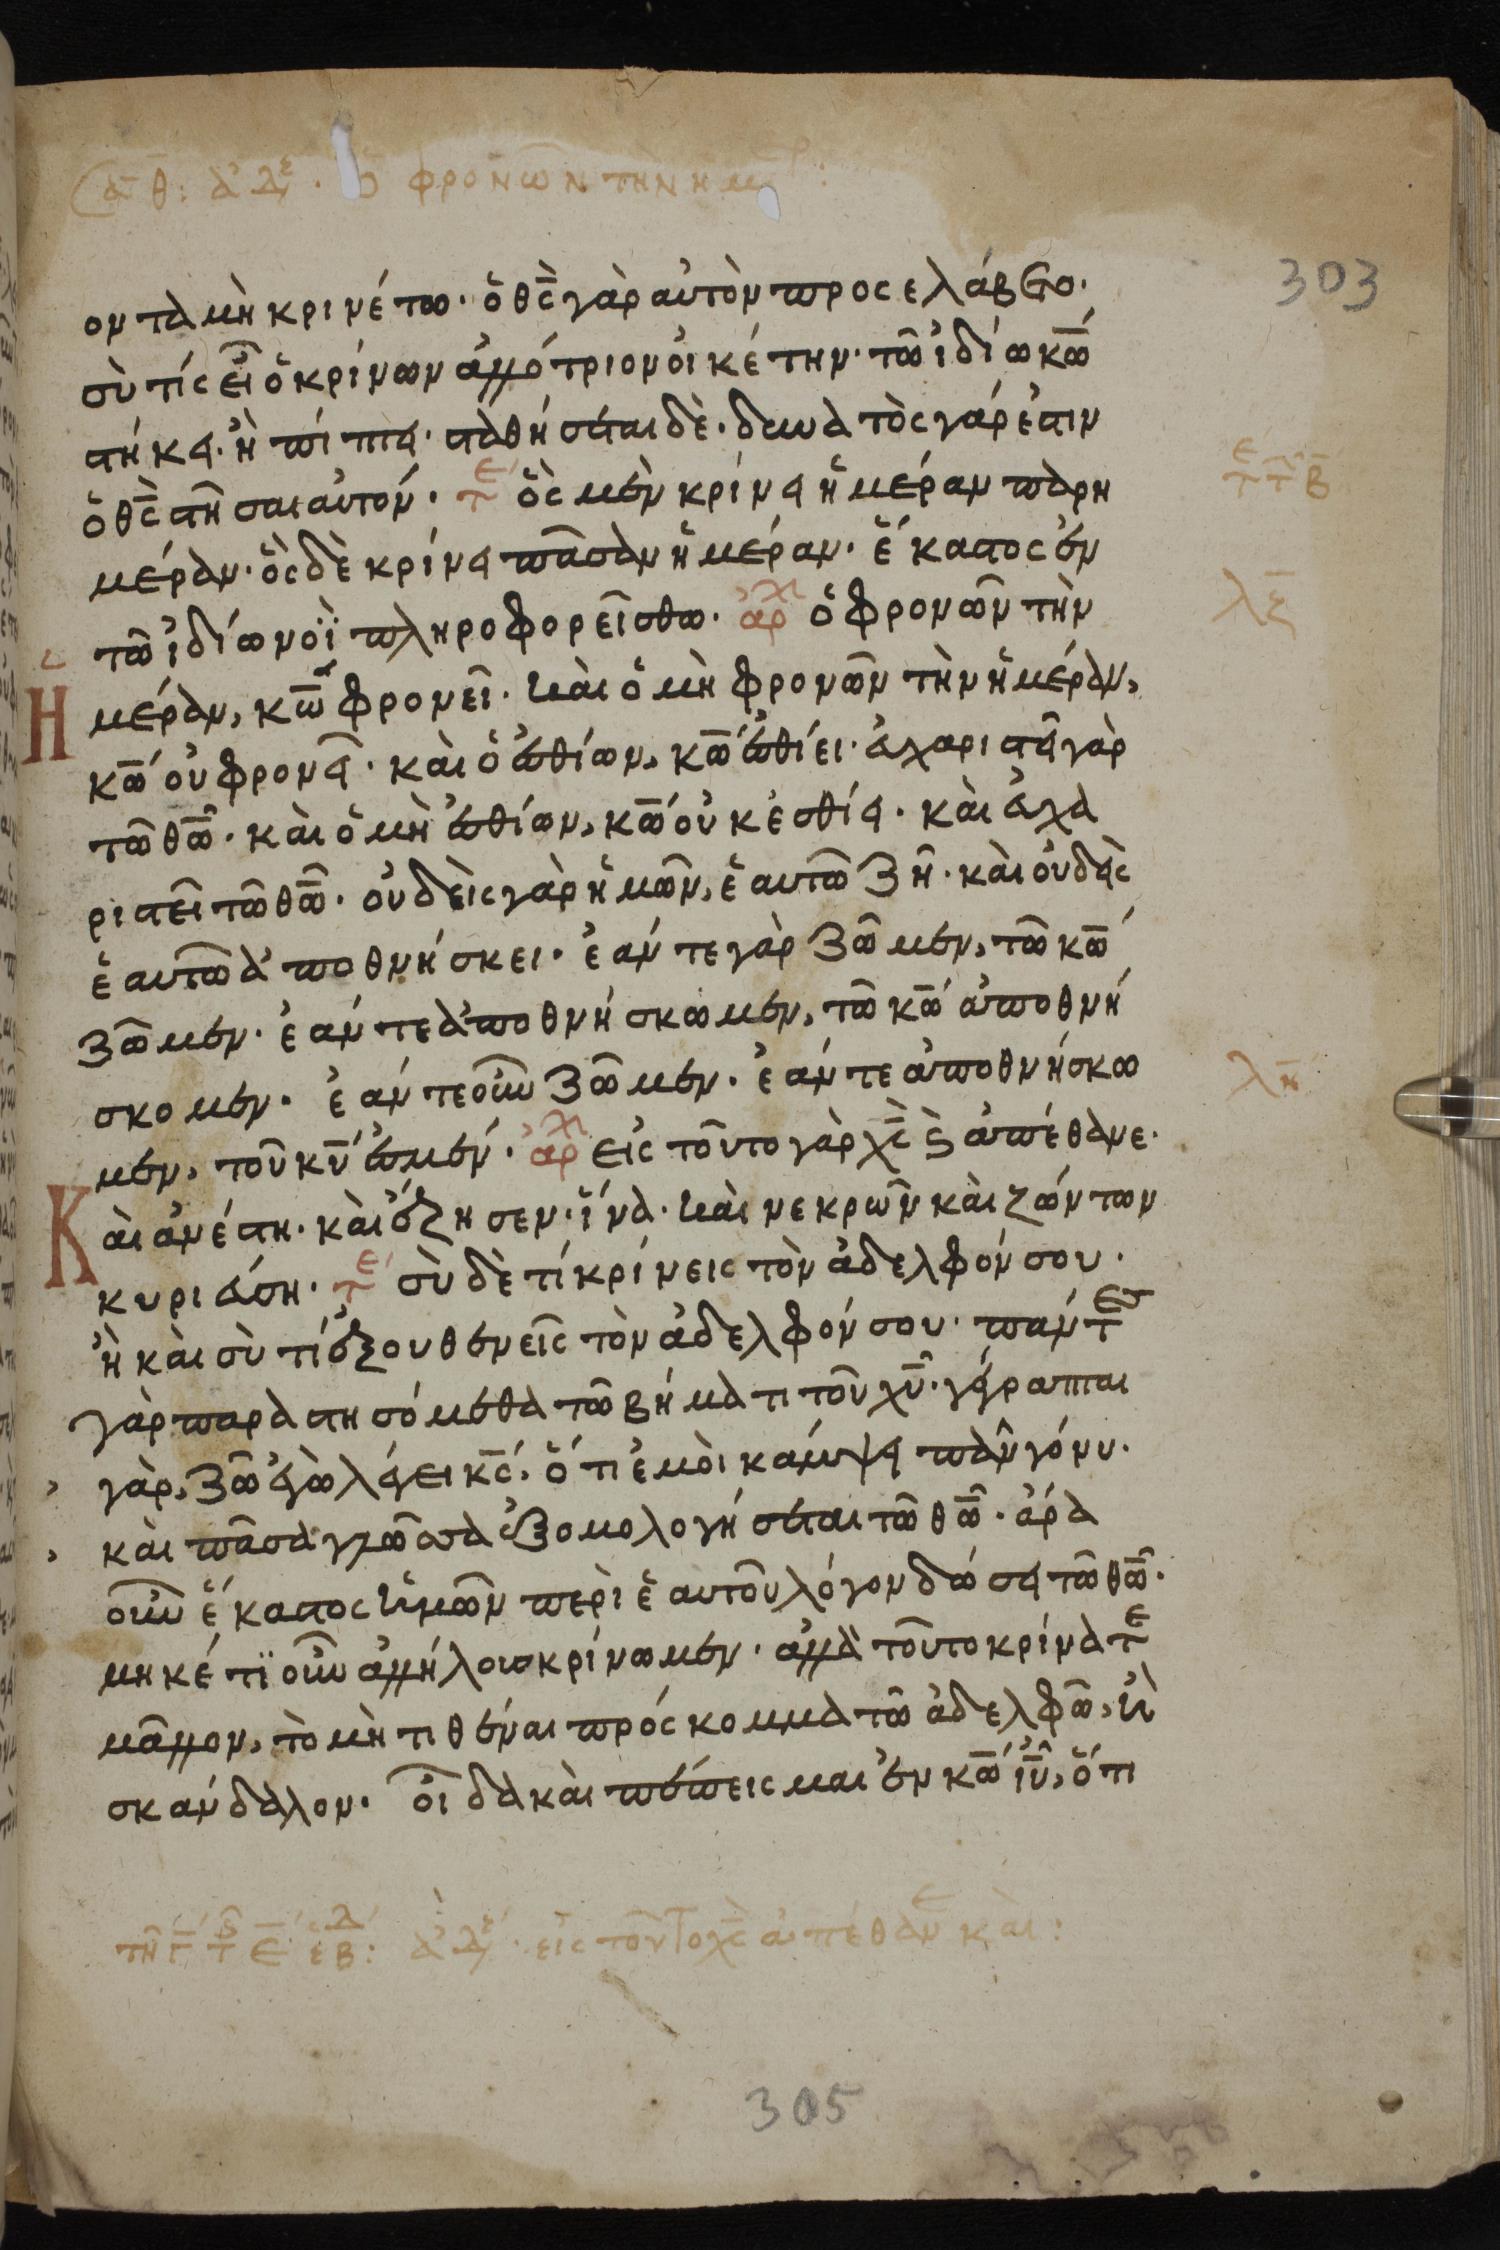 ἀδ̅ θ̅: ἀδε̒· ὁ φρονῶν τὴν ἡμερ:
303
οντα μὴ κρινέτω· ὁ θς̅ γὰρ αὐτὸν προσελάβετο·
σὺ τίς εἶ ὁ κρίνων ἀλλότριον οἰκέτην· τῶ ἰδίω κω̅
στήκει· ἢ πίπτει· σταθήσεται δὲ· δυνατὸς γάρ ἐστιν
ὁ θς̅ στῆσαι αὐτόν· τε ὃς μὲν κρίνει ἡμέραν παρ ἡ
μέραν· ὃς δὲ κρίνει πᾶσαν ἡμέραν· ἕκαστος ἐν
τῶ ἰδίω νοῒ πληροφορείσθω· ἀρχ ὁ φρονῶν τὴν
Ἡ
μέραν, κω̅ φρονεῖ· καὶ ὁ μὴ φρονῶν τὴν ἡμέραν,
κω̅ οὐ φρονεῖ· καὶ ὁ ἐσθίων, κω̅ ἐσθίει· εὐχαριστεῖ γὰρ
τῶ θω̅· καὶ ὁ μὴ ἐσθίων, κω̅ οὐκ ἐσθίει· καὶ εὐχα
ριστεῖ τῶ θω̅· οὐδεὶς γὰρ ἡμῶν, ἑαυτῶ ζῆ· καὶ οὐδεὶς
ἑαυτῶ ἀποθνήσκει· ἐάν τε γὰρ ζῶμεν, τῶ κω̅
ζῶμεν· ἐάν τε ἀποθνήσκωμεν, τῶ κω̅ ἀποθνή
σκομεν· ἐάν τε οὖν ζῶμεν· ἐάν τε ἀποθνήσκω
μεν, τοῦ κυ̅ ἐσμέν· ἀρχ εἰς τοῦτο γὰρ χς̅ ϗ ἀπέθανε·
Κ
αὶ ἀνέστη· καὶ ἔζησεν· ἵνα· καὶ νεκρῶν καὶ ζώντων
κυριεύση· τε σὺ δὲ τί κρίνεις τὸν ἀδελφόν σου·
ἢ καὶ σὺ τί ἐξουθενεῖς τὸν ἀδελφόν σου· πάντες
γὰρ παραστησόμεθα τῶ βήματι τοῦ χυ̅· γέγραπται
γὰρ, ζῶ ἐγὼ λέγει κς̅· ὅτι ἐμοὶ κάμψει πᾶν γόνυ·
καὶ πᾶσα γλῶσσα ἐξομολογήσεται τῶ θω̅· ἄρα
οὖν ἕκαστος ἡμῶν περὶ ἑαυτοῦ λόγον δώσει τῶ θω̅·
μηκέτϊ οὖν ἀλλήλους κρίνωμεν· ἀλλὰ τοῦτο κρίνατε
μᾶλλον, τὸ μὴ τιθέναι πρόσκομμα τῶ ἀδελφῶ, ἢ
σκάνδαλον· οἶδα καὶ πέπεισμαι ἐν κω̅ ιυ̅, ὅτι
λζ̅
λη̅
εἰς τοῦτο χς̅ ἀπέθανε καὶ:
305